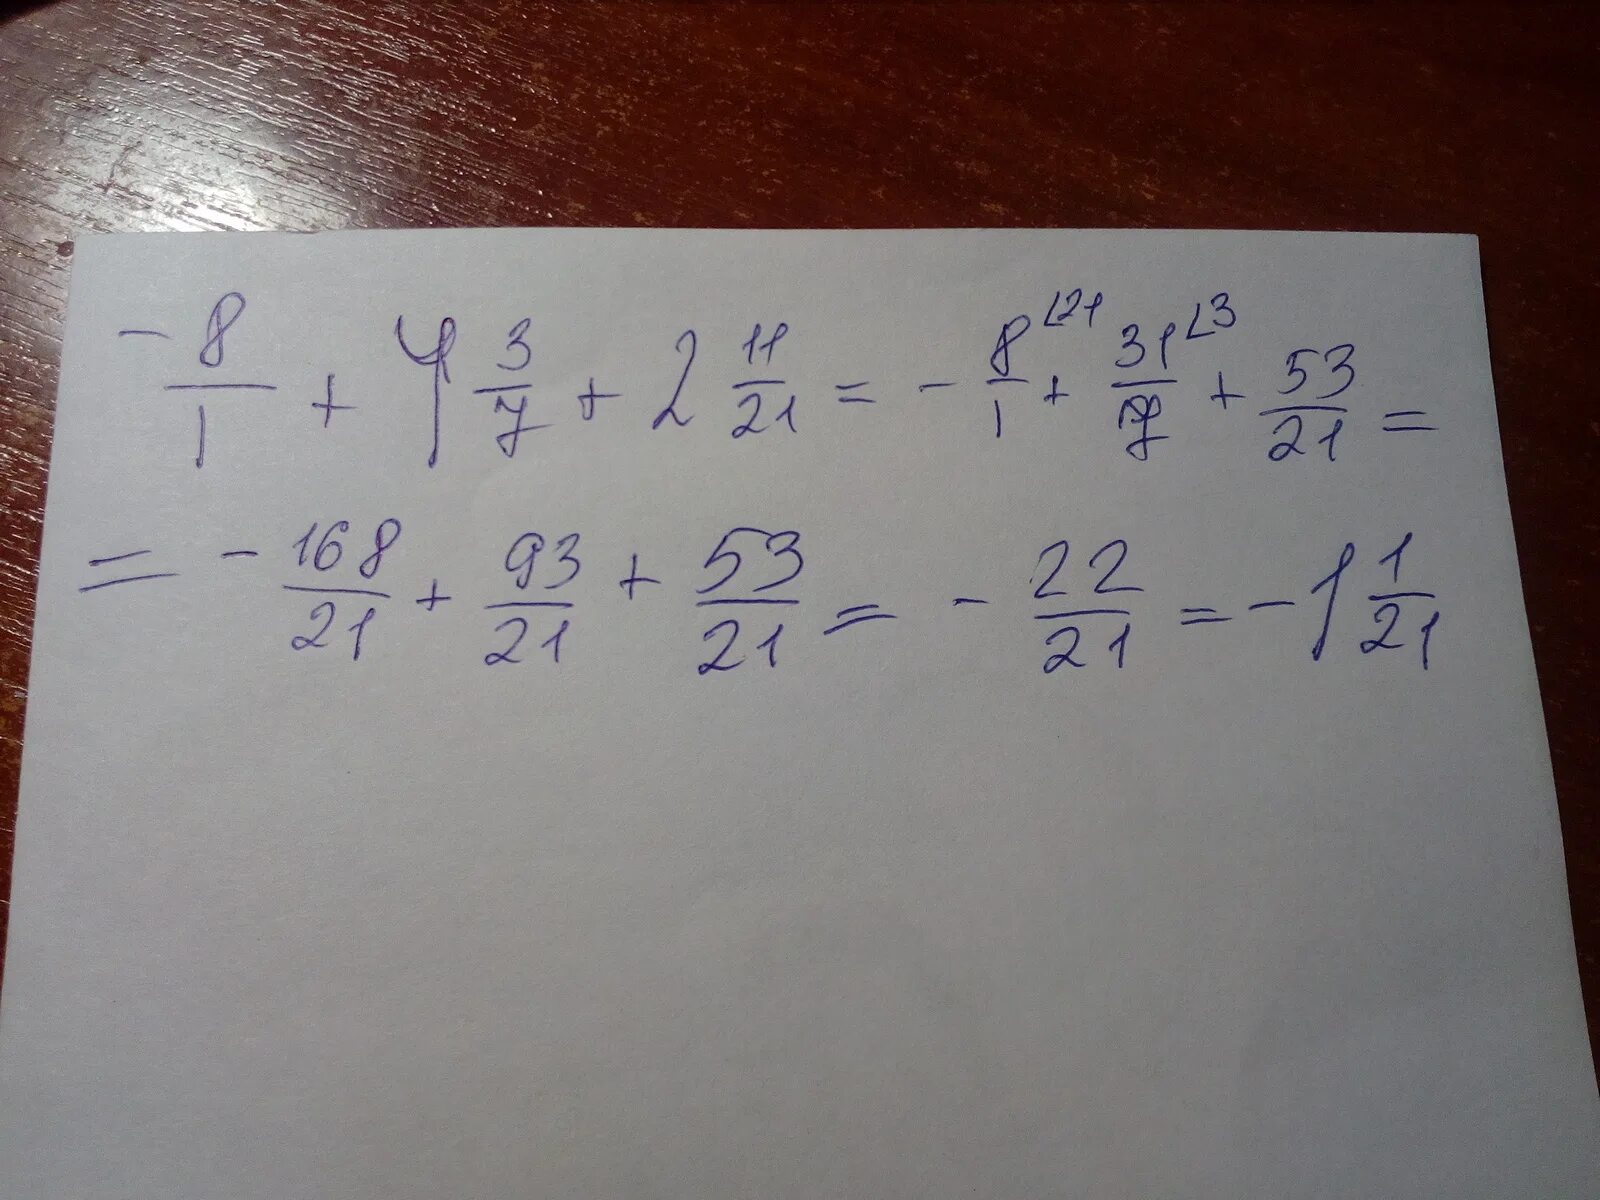 - 8/1 + 4 3/7 + 2 11/21 = - 8/1 ∠21 + 31/7 ∠3 + 53/21 =
= - 168/21 + 93/21 + 53/21 = - 22/21 = - 1 1/21